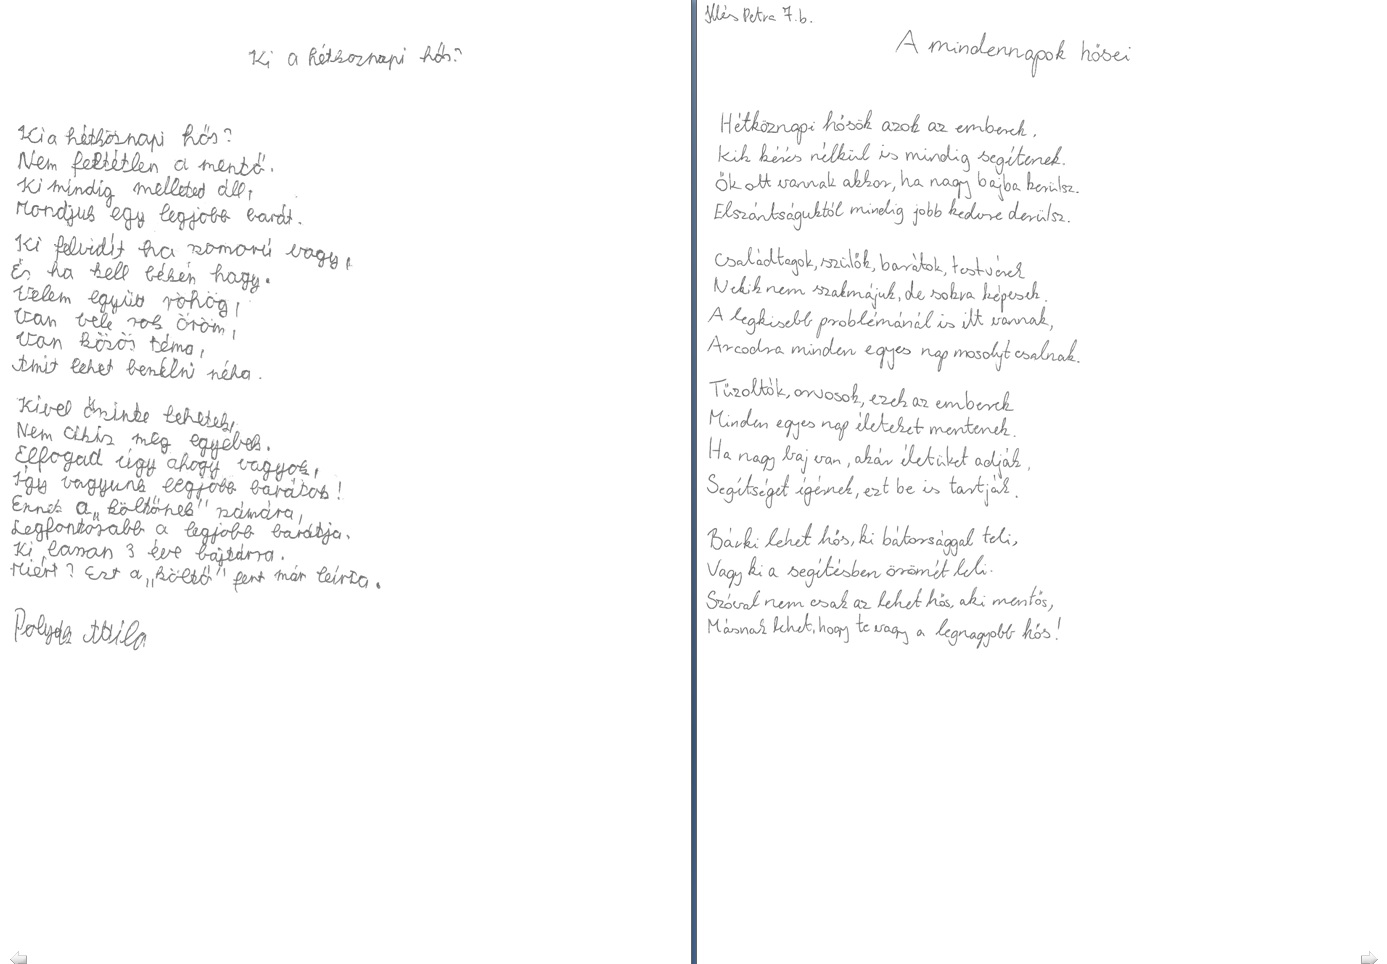 Ki a hétköznapi hős?
Ki a hétköznapi hős?
Nem feltétlen a mentő.
Ki mindig melletted áll,
Mondjuk egy legjobb barát.
Ki felvidít ha szomorú vagy,
És ha kell békén hagy.
Velem együtt röhög,
Van vele sok öröm,
Van közös téma,
Amit lehet benélni néha.
Kivel őszinte lehetek,
Nem cikiz meg egyebek.
Elfogad úgy ahogy vagyok,
Így vagyunk legjobb barátok!
Ennek a „költőnek" számára,
Legfontosabb a legjobb barátja.
Ki lassan 3 éve bajtársa.
Miért? Ezt a „költő" fent már leírta.
Attila
Illés Petra 7.b.
A mindennapok hősei
Hétköznapi hősök azok az emberek,
Kik kérés nélkül is mindig segítenek.
Ők ott vannak akkor, ha nagy bajba kerülsz.
Elszántságuktól mindig jobb kedvre derülsz.
Családtagok, szülők, barátok, testvérek
Nekik nem szakmájuk, de sokra képesek.
A legkisebb problémánál is itt vannak,
Arcodra minden egyes nap mosolyt csalnak.
Tűzoltók, orvosok, ezek az emberek
Minden egyes nap életeket mentenek.
Ha nagy baj van, akár életüket adják,
Segítséget ígérnek, ezt be is tartják.
Bárki lehet hős, ki bátorsággal teli,
Vagy ki a segítésben örömét leli.
Szóval nem csak az lehet hős, aki mentős,
Másnak lehet, hogy te vagy a legnagyobb hős!